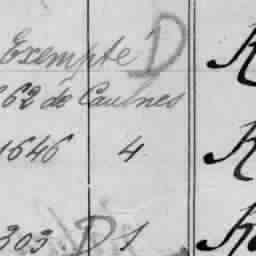 Exempte D
62 de Caulnes
1646 4 K
303 D 1